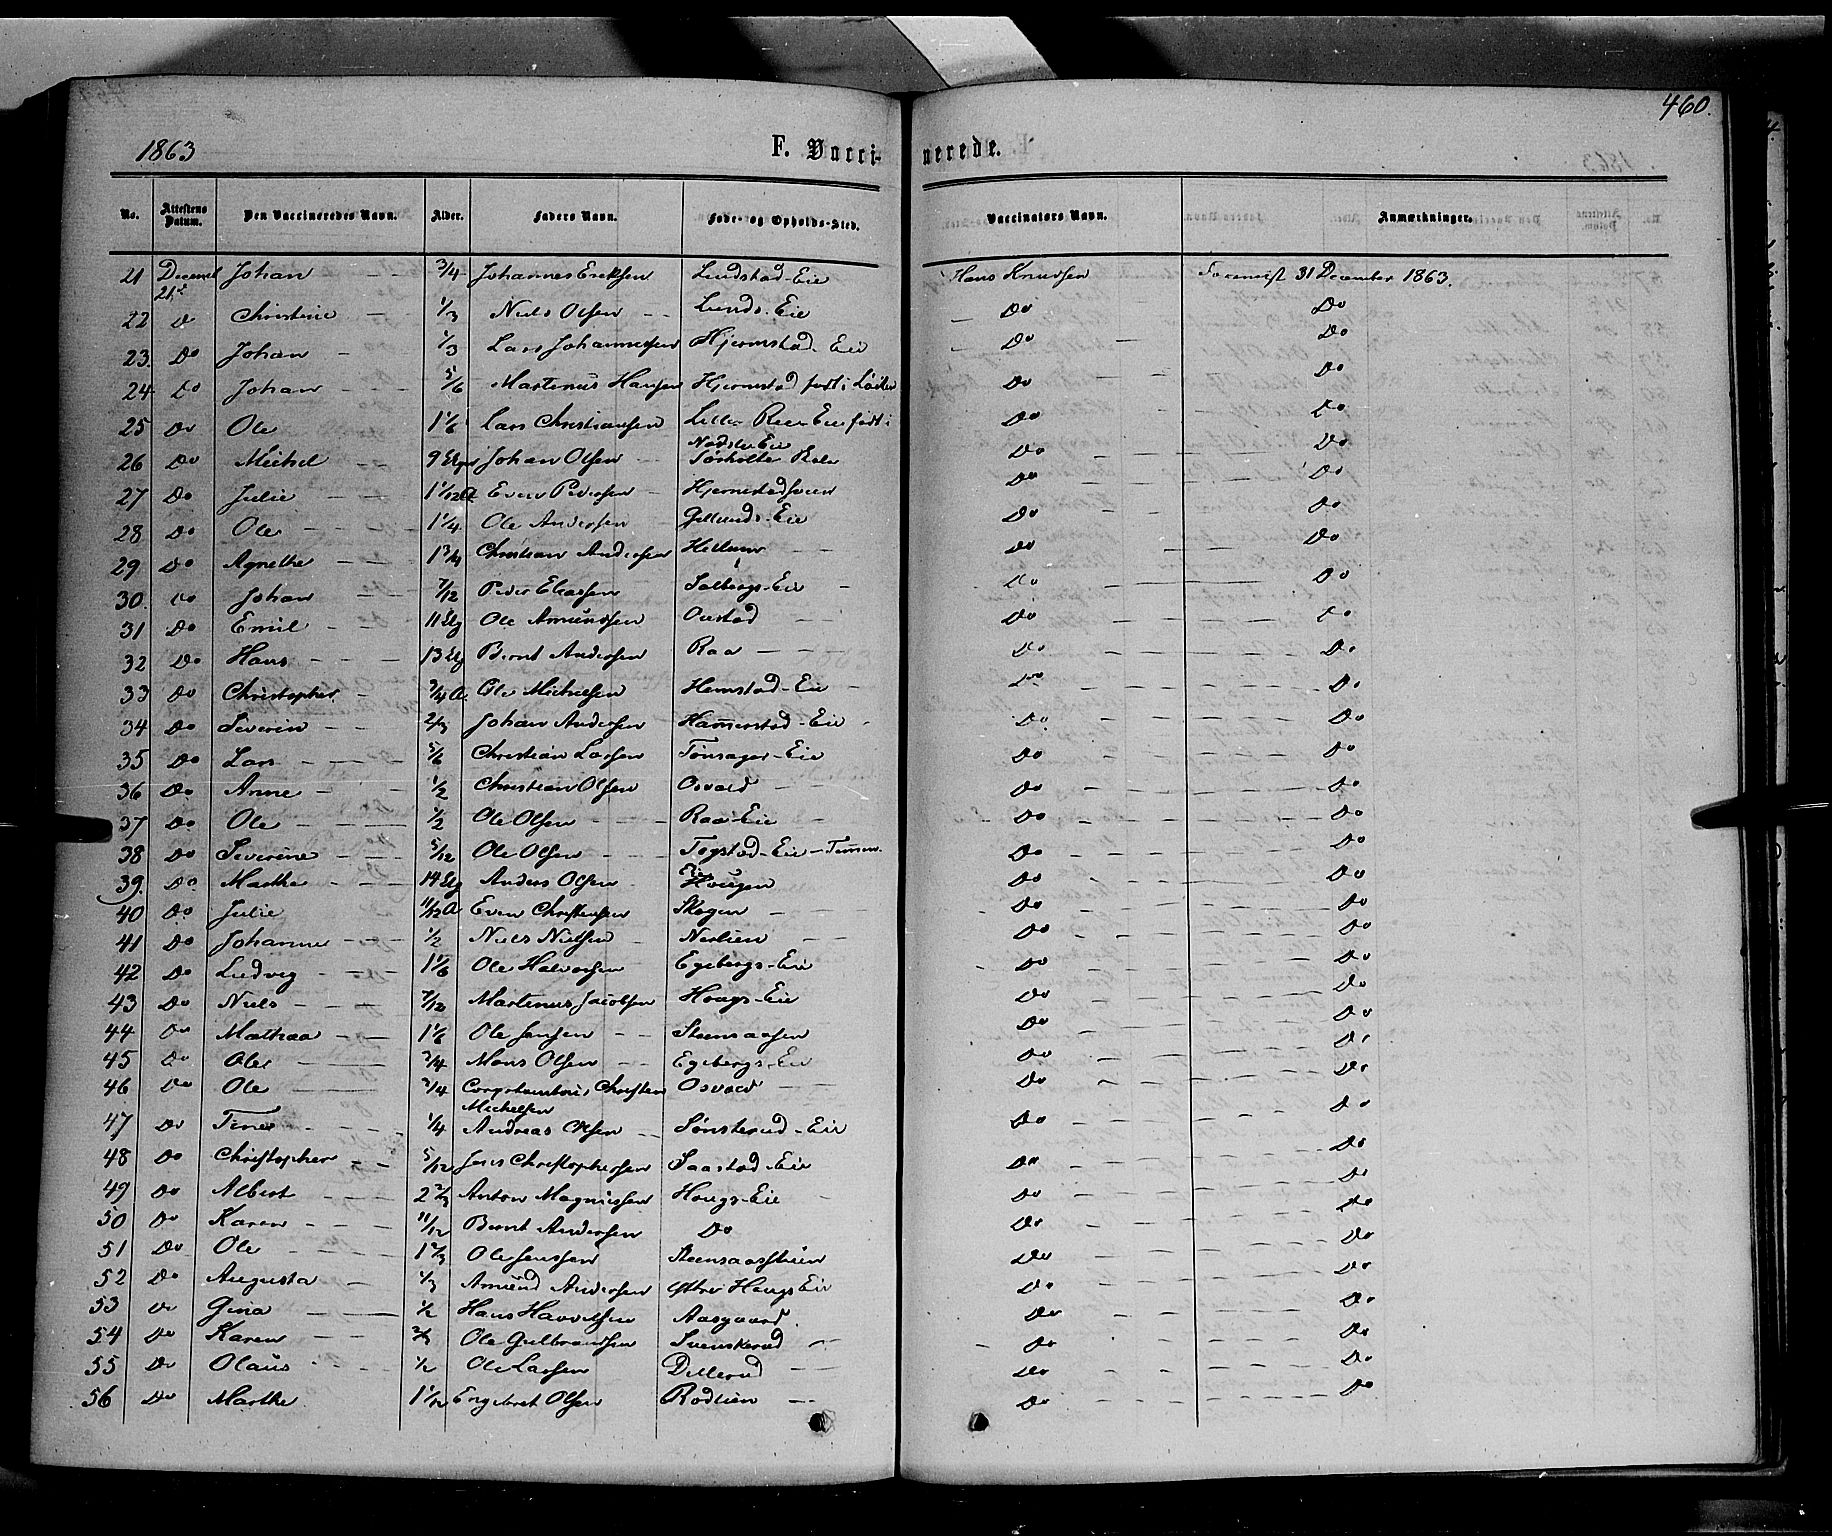 460.
1863
F. Vaccinerede.
No. Attestens Datum. Den Vaccineredes Navn. Alder. Faders Navn. Føde- og Opholds-Sted. Vaccinators Navn. Anmærkninger.
21 Decembr 21de Johan 3/4 Johannes Eriksen Lundstad-Eie Hans Knudsen Forevist 31 December 1863.
22 Do Christine 1/3 Niels Olsen Lunds-Eie Do Do
23. Do Johan 1/3 Lars Johannessen Hjermstad-Eie Do Do
24 Do Johan 5/6 Martinus Hansen Hjermstad født i Løiten Do Do
25 Do Ole 1 1/6 Lars Christiansen Lille Eie født i Do Do
26 Do Michel 9 Johan Olsen Do Do
27 Do Julie 1 1/12 A Even Pedersen Do Do
28 Do Ole 1 1/4 Ole Andersen Gillunds-Eie Do Do
29 Do Agnethe 1 3/4 Christian Andersen Do Do
30. Do Johan 7/12 Peder Eliassen Solbergs-Eie Do Do
31 Do Emil 11 Ole Amundsen Do Do
32 Do Hans 13 Bernt Andersen Raa Do Do
33 Do Christopher 3/4 A Ole Michelsen Hemstad-Eie Do Do
34 Do Severin 2/3 Johan Andersen Hamerstad-Eie Do Do
35 Do Lars 5/6 Christian Larsen Tønsager-Eie Do Do
36 Do Anne 1/2 Christian Olsen Osvold Do Do
37 Do Ole 1/2 Ole Olsen Raa-Eie Do Do
38 Do Severine 5/12 Ole Olsen Togstad-Eie Do Do
39. Do Marthe 14 Anders Olsen Eie Hougen Do Do
40 Do Julie 11/12 A Even Christensen Skogen Do Do
41 Do Johanne 1/2 Niels Nielsen Nerlien Do Do
42 Do Ludvig 1 1/6 Ole Halvorsen Egebergs-Eie Do Do
43 Do Niels 7/12 Martinus Jacobsen Hougs-Eie Do Do
44 Do Mathea 1 1/6 Ole Jensen Steensaasen Do Do
45 Do Ole 3/4 Mons Olsen Egebergs-Eie Do Do
46 Do Ole 3/4 Christian Michelsen Osvold Do Do
47 Do Tine 1/4 Andreas Olsen Sønsterud-Eie Do Do
48 Do Christopher 5/12 Jens Christophersen Saastad-Eie Do Do
49 Do Albert 2 2/3 Anton Magnussen Hougs-Eie Do Do
50 Do Karen 11/12 Bernt Andersen Do Do Do
51 Do Ole 1 2/3 Ole Jenssen Do Do
52 Do Augusta 1/3 Amund Andersen Østre Hougs Eie Do Do
53 Do Gina 1/2 Hans Aasgaard Do Do
54 Do Karen 2/3 Ole Gulbrandsen Svenskerud Do Do
55 Do Olaus 1/2 Ole Larsen Dillerud Do Do
56 Do Marthe 1 1/12 Engebret Olsen Rodlien Do Do